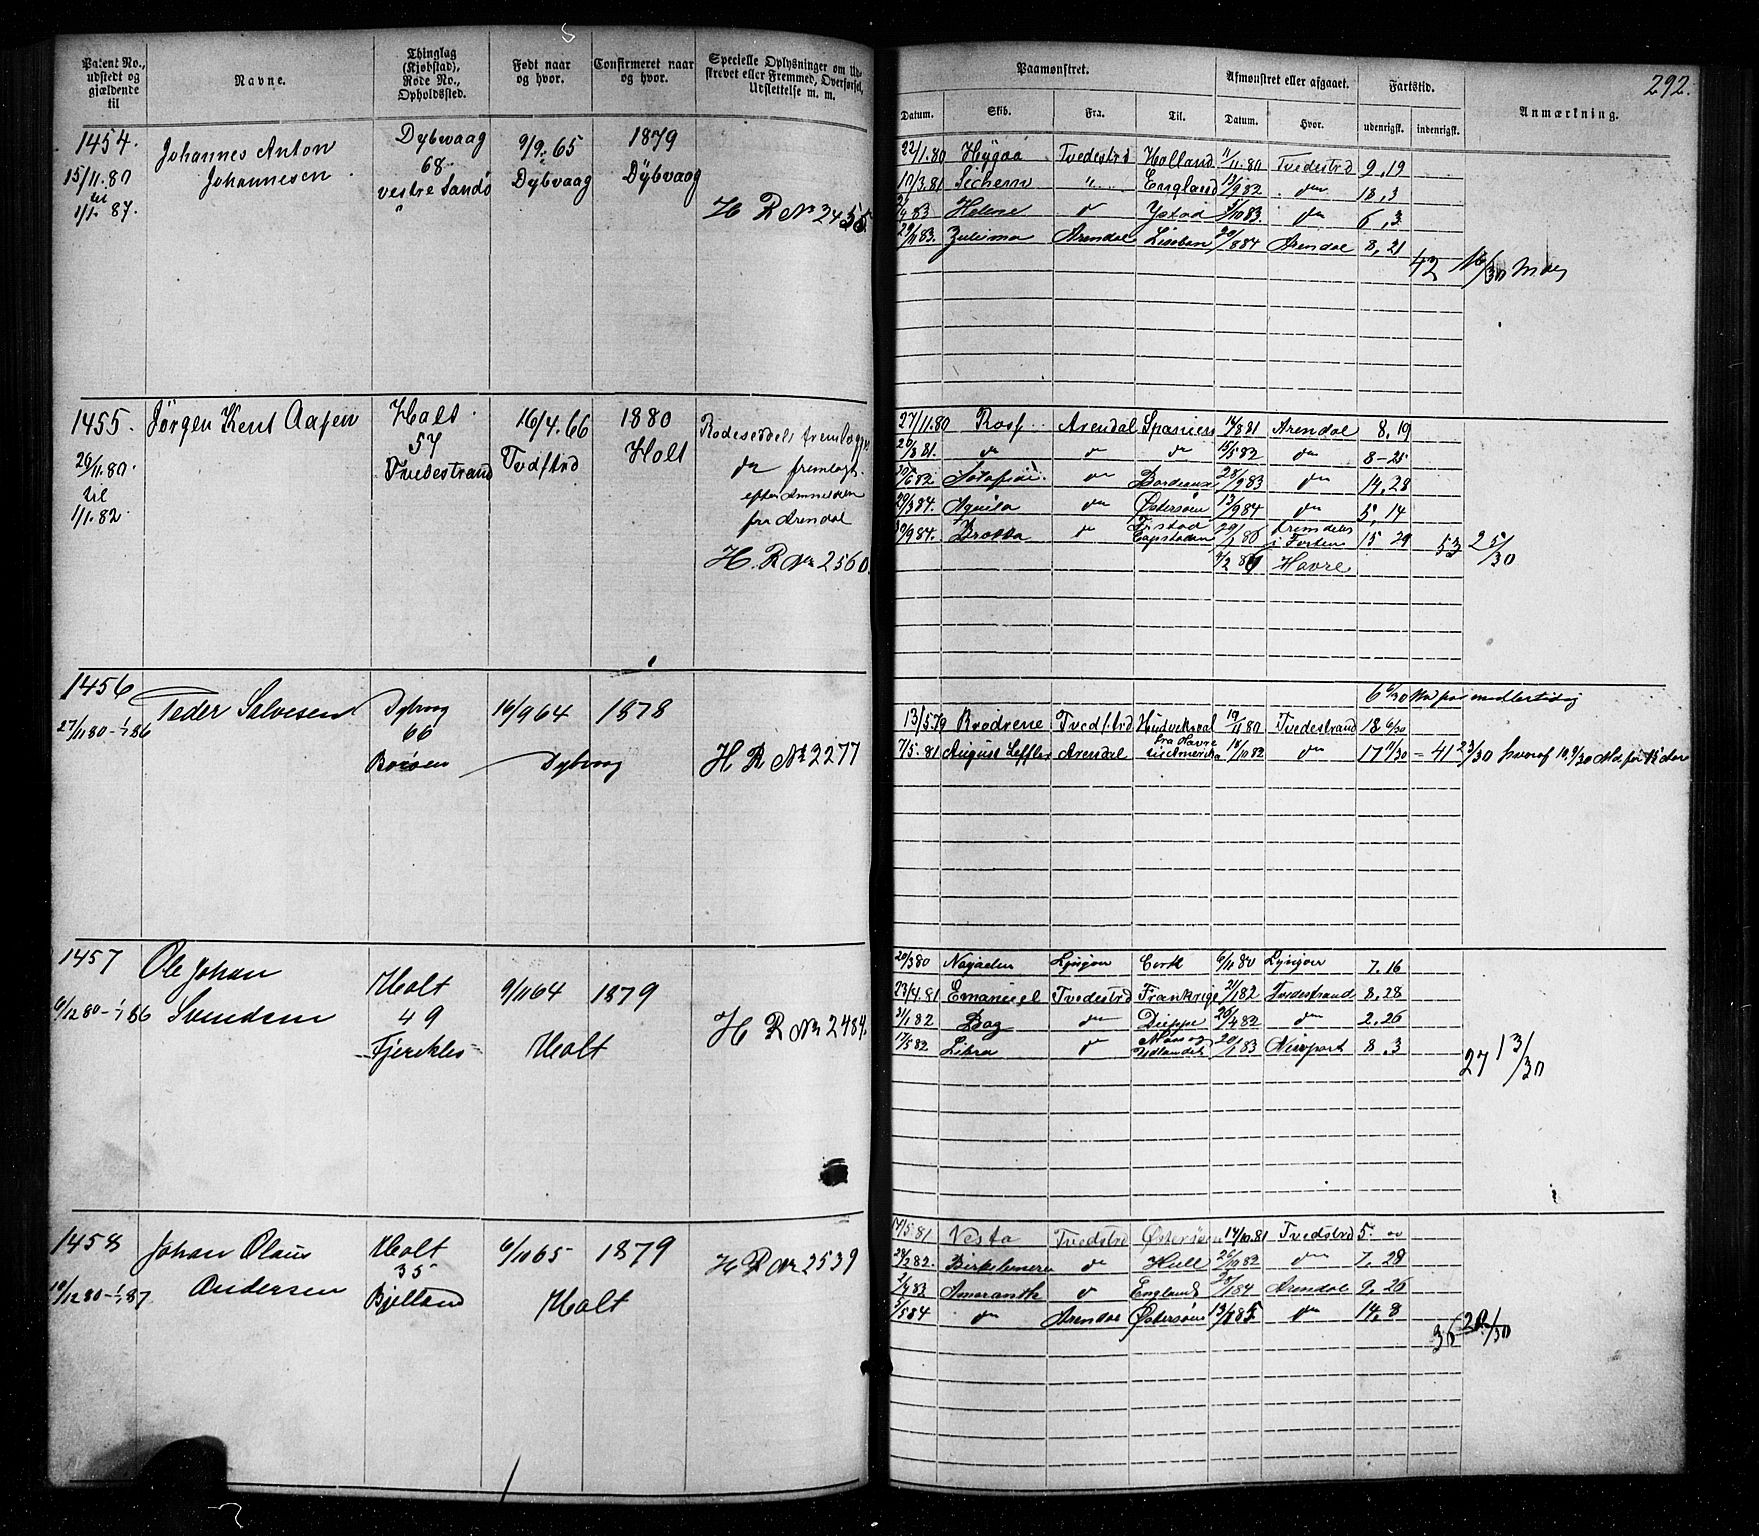 292.
Patent No., udstedt og gjældende til
Navne.
Thinglag (Kjøbstad), Rode No., Opholdssted.
Født naar og hvor.
Confirmeret naar og hvor.
Specielle Oplysninger om Udskrevet eller Fremmed, Overførsel, Udslettelse m. m.
Paamønstret.
Afmønstret eller afgaaet.
Fartstid.
Anmærkning.
Datum. Skib. Fra. Til. Datum. Hvor. udenrigsk. indenrigsk.
1454. Johannes Anton Dybvaag 9/9. 65 1879
15/11.80 Johannesen 68 Dybvaag Dybvaag
til vestre Sandø
1/1. 87. H R No 2455.
22/1.80 Hygæa Tvedestrd Holland 11/11.80 Tvedestrd 9.19
17/3.81 Sichem " England 13/9 82 do 18.3
83 Helene do Ystad 83 do 6.3
29/11 83. Zuleima Arendal Lissabon 20/8 84 Arendal 8.21
42 16/30 Mdr
1455. Jørgen Kent Aasen Holt 16/4.66 1880
26/11.80 57 Tvedstrd Holt
til Tvedestrand
1/1.82.
Rodeseddel fremlagges
da fremlagt
efter Anmelden
fra Arendal
H. R No 2560.
27/11.80 Rosp Arendal Spanien 14/8 81 Arendal 8.19
26/8 81. do do do 15/5 82 do 8-25
30/6 82. do Bordeaux 28/9 83 do 14.28
29/3 84. Aquila do Østersøen 13/9 84 do 5.14
30/9 84. Drotta do Capstaden 29/1 86 15 29
53 25/30
4/2 86 Havre
1456 Peder Salvesen Dybvog 16/9 64 1878
27/11 80 - 1/1 86 66
Borøen Dybvog
H R No 2277
6 6/30
13/5 79 Brødrene Tvedstrd Hudviksval 19/11 80 Tvedestrand 18 6/30
7/5. 81 August Leffler Arendal fra Havre til Amerika 18/10 82 do 17 11/30 - 41 23/30 hvoraf
1457 Ole Johan Holt 9/11 64 1879
6/12 80 - 1/1 86 Svendsen 49
Fjerekles Holt
H R No 2484.
20/3 80 Najaden Lyngør Cork 6/11 80 Lyngør 7.16
23/4.81 Emanuel Tvedestrd Frankrige 21/1 82 Tvedestrand 8.28
31/1 82 Dag do Dieppe 26/4 82 do 2.26
17/5 82 Libra do Moss og Udlandet 20/1 83 Newport 8.3
27 13/30
1458 Johan Olaus Holt 6/11 65 1879
10/12 80 - 1/1 87 Andersen 35
Bjelland Holt
H R No 2539
14/5 81 Vesta Tvedstrd Østersøen 14/10 81 Tvedstrd 5. 00
28/2 82. Birkelunden do Hull 26/10 82 do 7.28
2/4 83 Amaranth do England 28/1 84 Arendal 9.26
5/5 84 do Arendal Østersøen 13/7 85 do 14.8
36 20/30